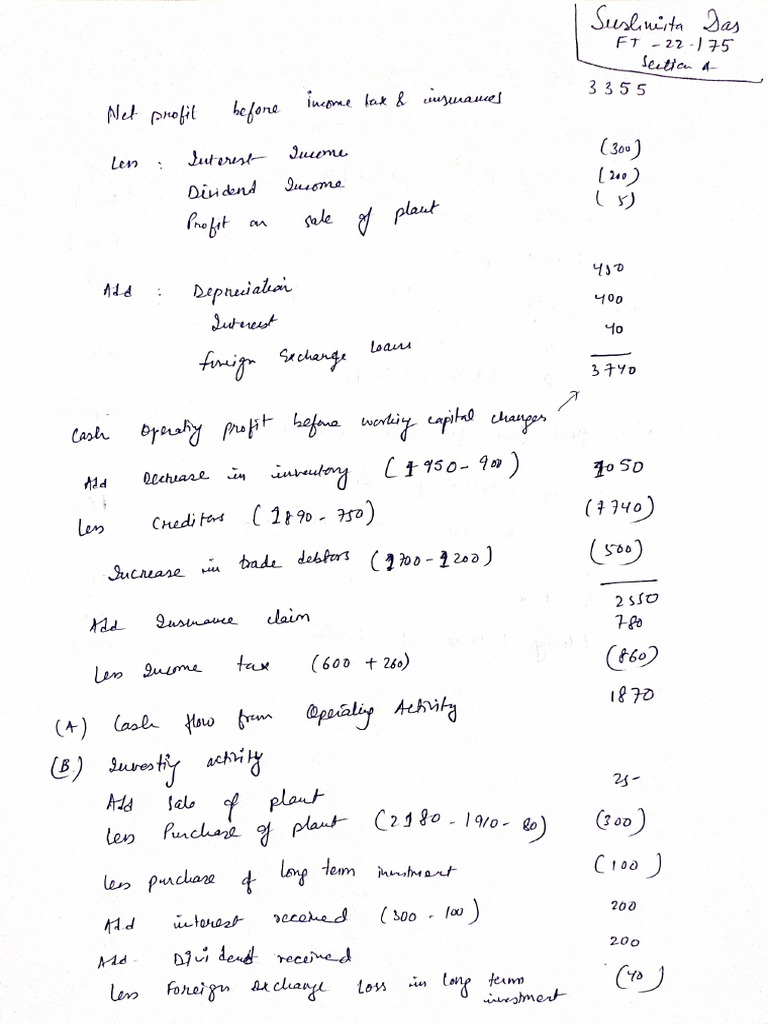 Sushmita Das
FT - 22 - 175
Section A
Net profit before income tax & insurances 3355
Less : Interest Income (300)
Dividend Income (200)
Profit on sale of plant (5)
Add : Depreciation 450
Interest 400
Foreign Exchange Loans 40
3740
Cash Operating profit before working capital changes
Add Decrease in inventory (1950 - 900) 1050
Less Creditors (1890 - 750) (1740)
Increase in trade debtors (1700 - 1200) (500)
2550
Add Insurance claim 780
Less Income tax (600 + 260) (860)
1870
(A) Cash flow from Operating Activity
(B) Investing activity
Add Sale of plant 25
Less Purchase of plant (2180 - 1910 - 80) (300)
Less purchase of long term investment (100)
Add interest received (300 - 100) 200
Add Dividend received 200
Less Foreign exchange Loss in long term investment (40)